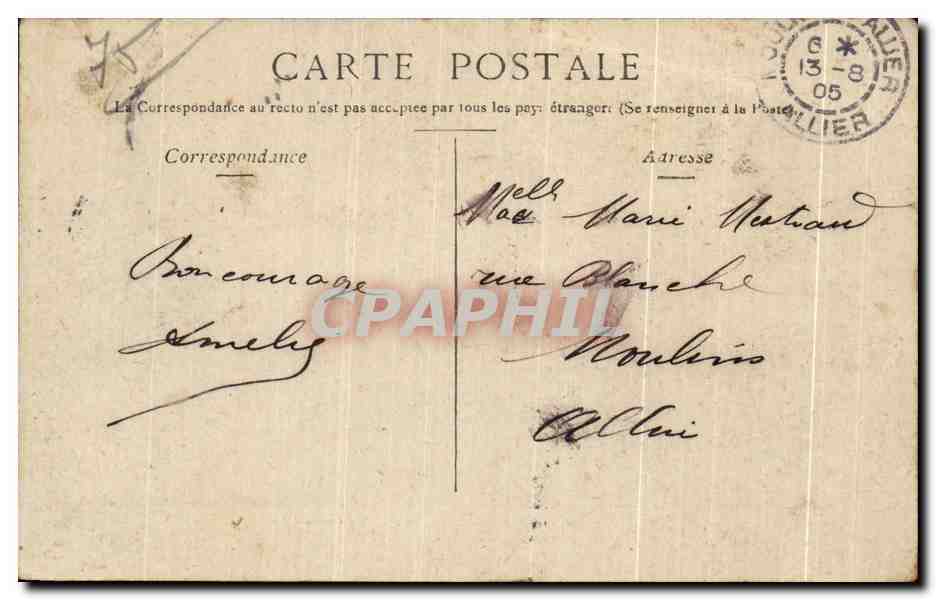 75
CARTE POSTALE
La Correspondance au recto n'est pas acceptee par tous les pays étrangers (Se renseigner à la Poste)
Correspondance
Adresse
MOULINS ALLIER
6 *
13 -8
05
ALLIER
Bon courage
Amelie
Melle Marie
rue Blanche
Moulins
Allier
CPAPHIL